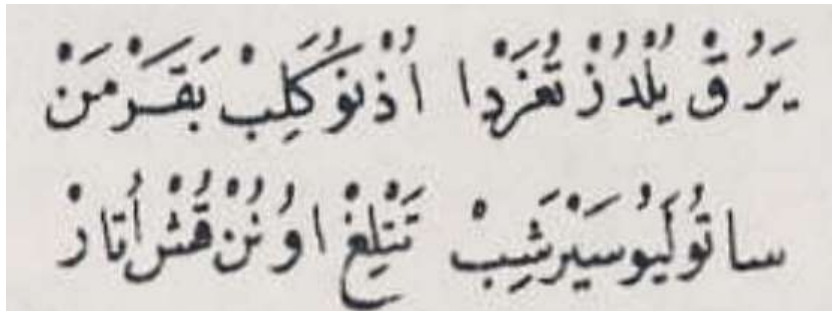 يَرُقْ يُلْدُزْ تُغَرْدا اُذْنُو كَلِبْ بَقَرْ مَنْ
ساتُولَيُو سَيْرَشِبْ تَتْلِغْ اوُنُنْ قُشْ اُتارْ